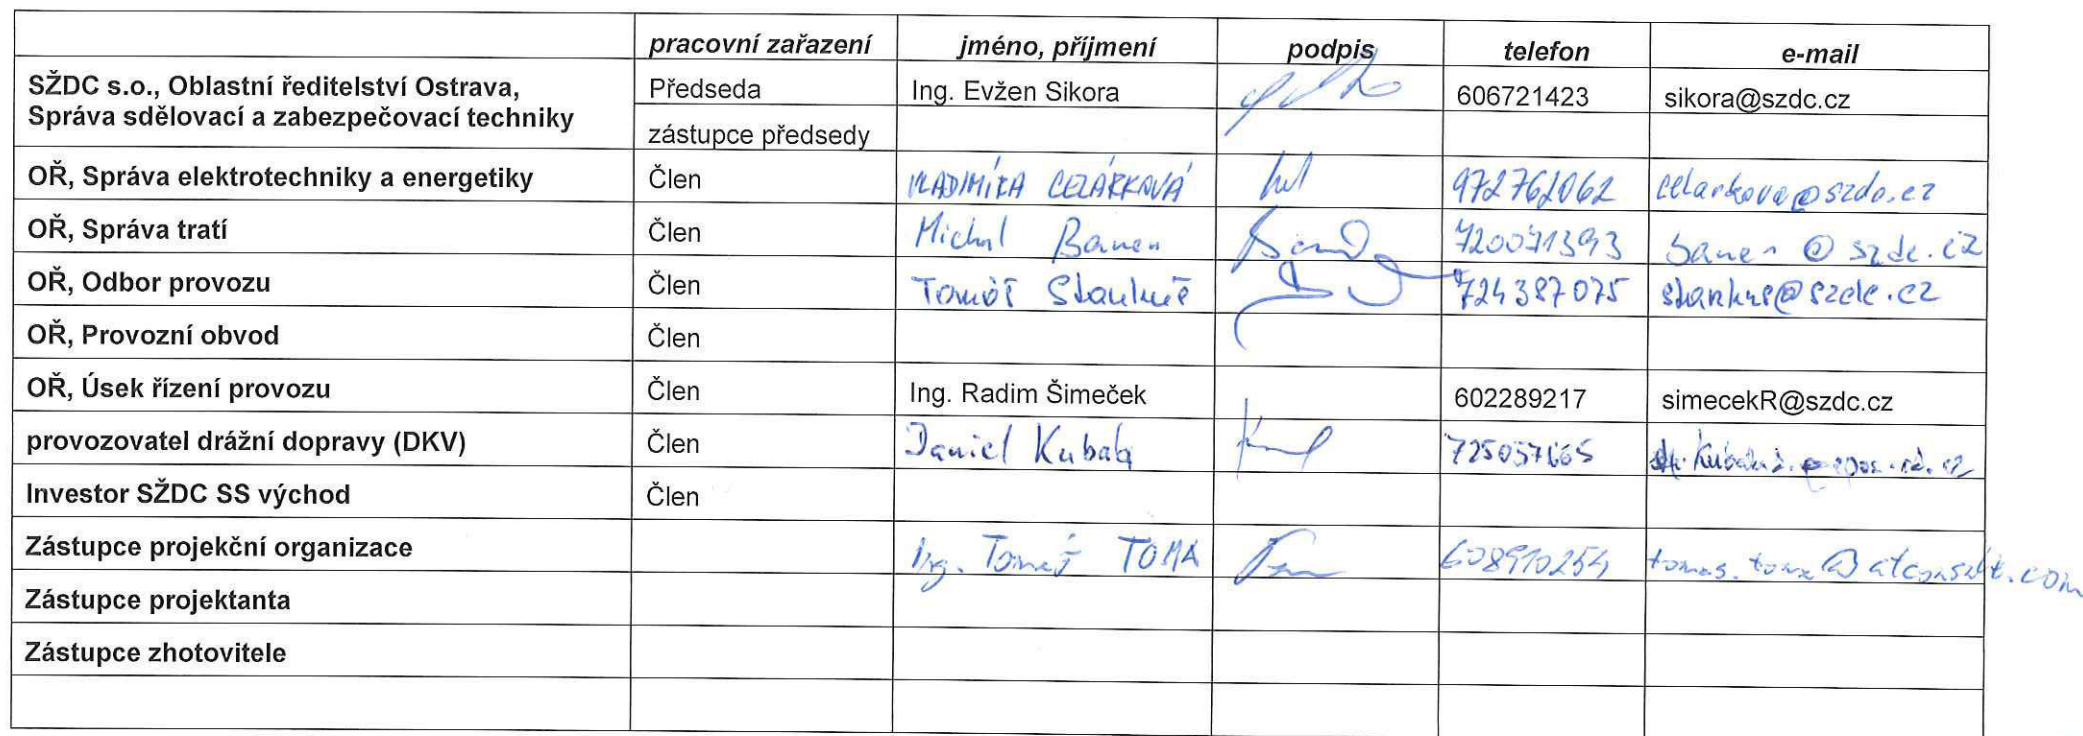 pracovní zařazení jméno, příjmení podpis telefon e-mail
SŽDC s.o., Oblastní ředitelství Ostrava,
Správa sdělovací a zabezpečovací techniky
Předseda Ing. Evžen Sikora 606721423 sikora@szdc.cz
zástupce předsedy
OŘ, Správa elektrotechniky a energetiky Člen VLADIMÍRA CELÁRKOVÁ 972762062 celarkova@szdc.cz
OŘ, Správa tratí Člen Michal 720071393 @szdc.cz
OŘ, Odbor provozu Člen Tomáš 724387075
OŘ, Provozní obvod Člen
OŘ, Úsek řízení provozu Člen Ing. Radim Šimeček 602289217 simecekR@szdc.cz
provozovatel drážní dopravy (DKV) Člen Daniel Kubala
Investor SŽDC SS východ Člen
Zástupce projekční organizace Ing. Tomáš TOMA 608910254 tomas.toma@atconsult.com
Zástupce projektanta
Zástupce zhotovitele